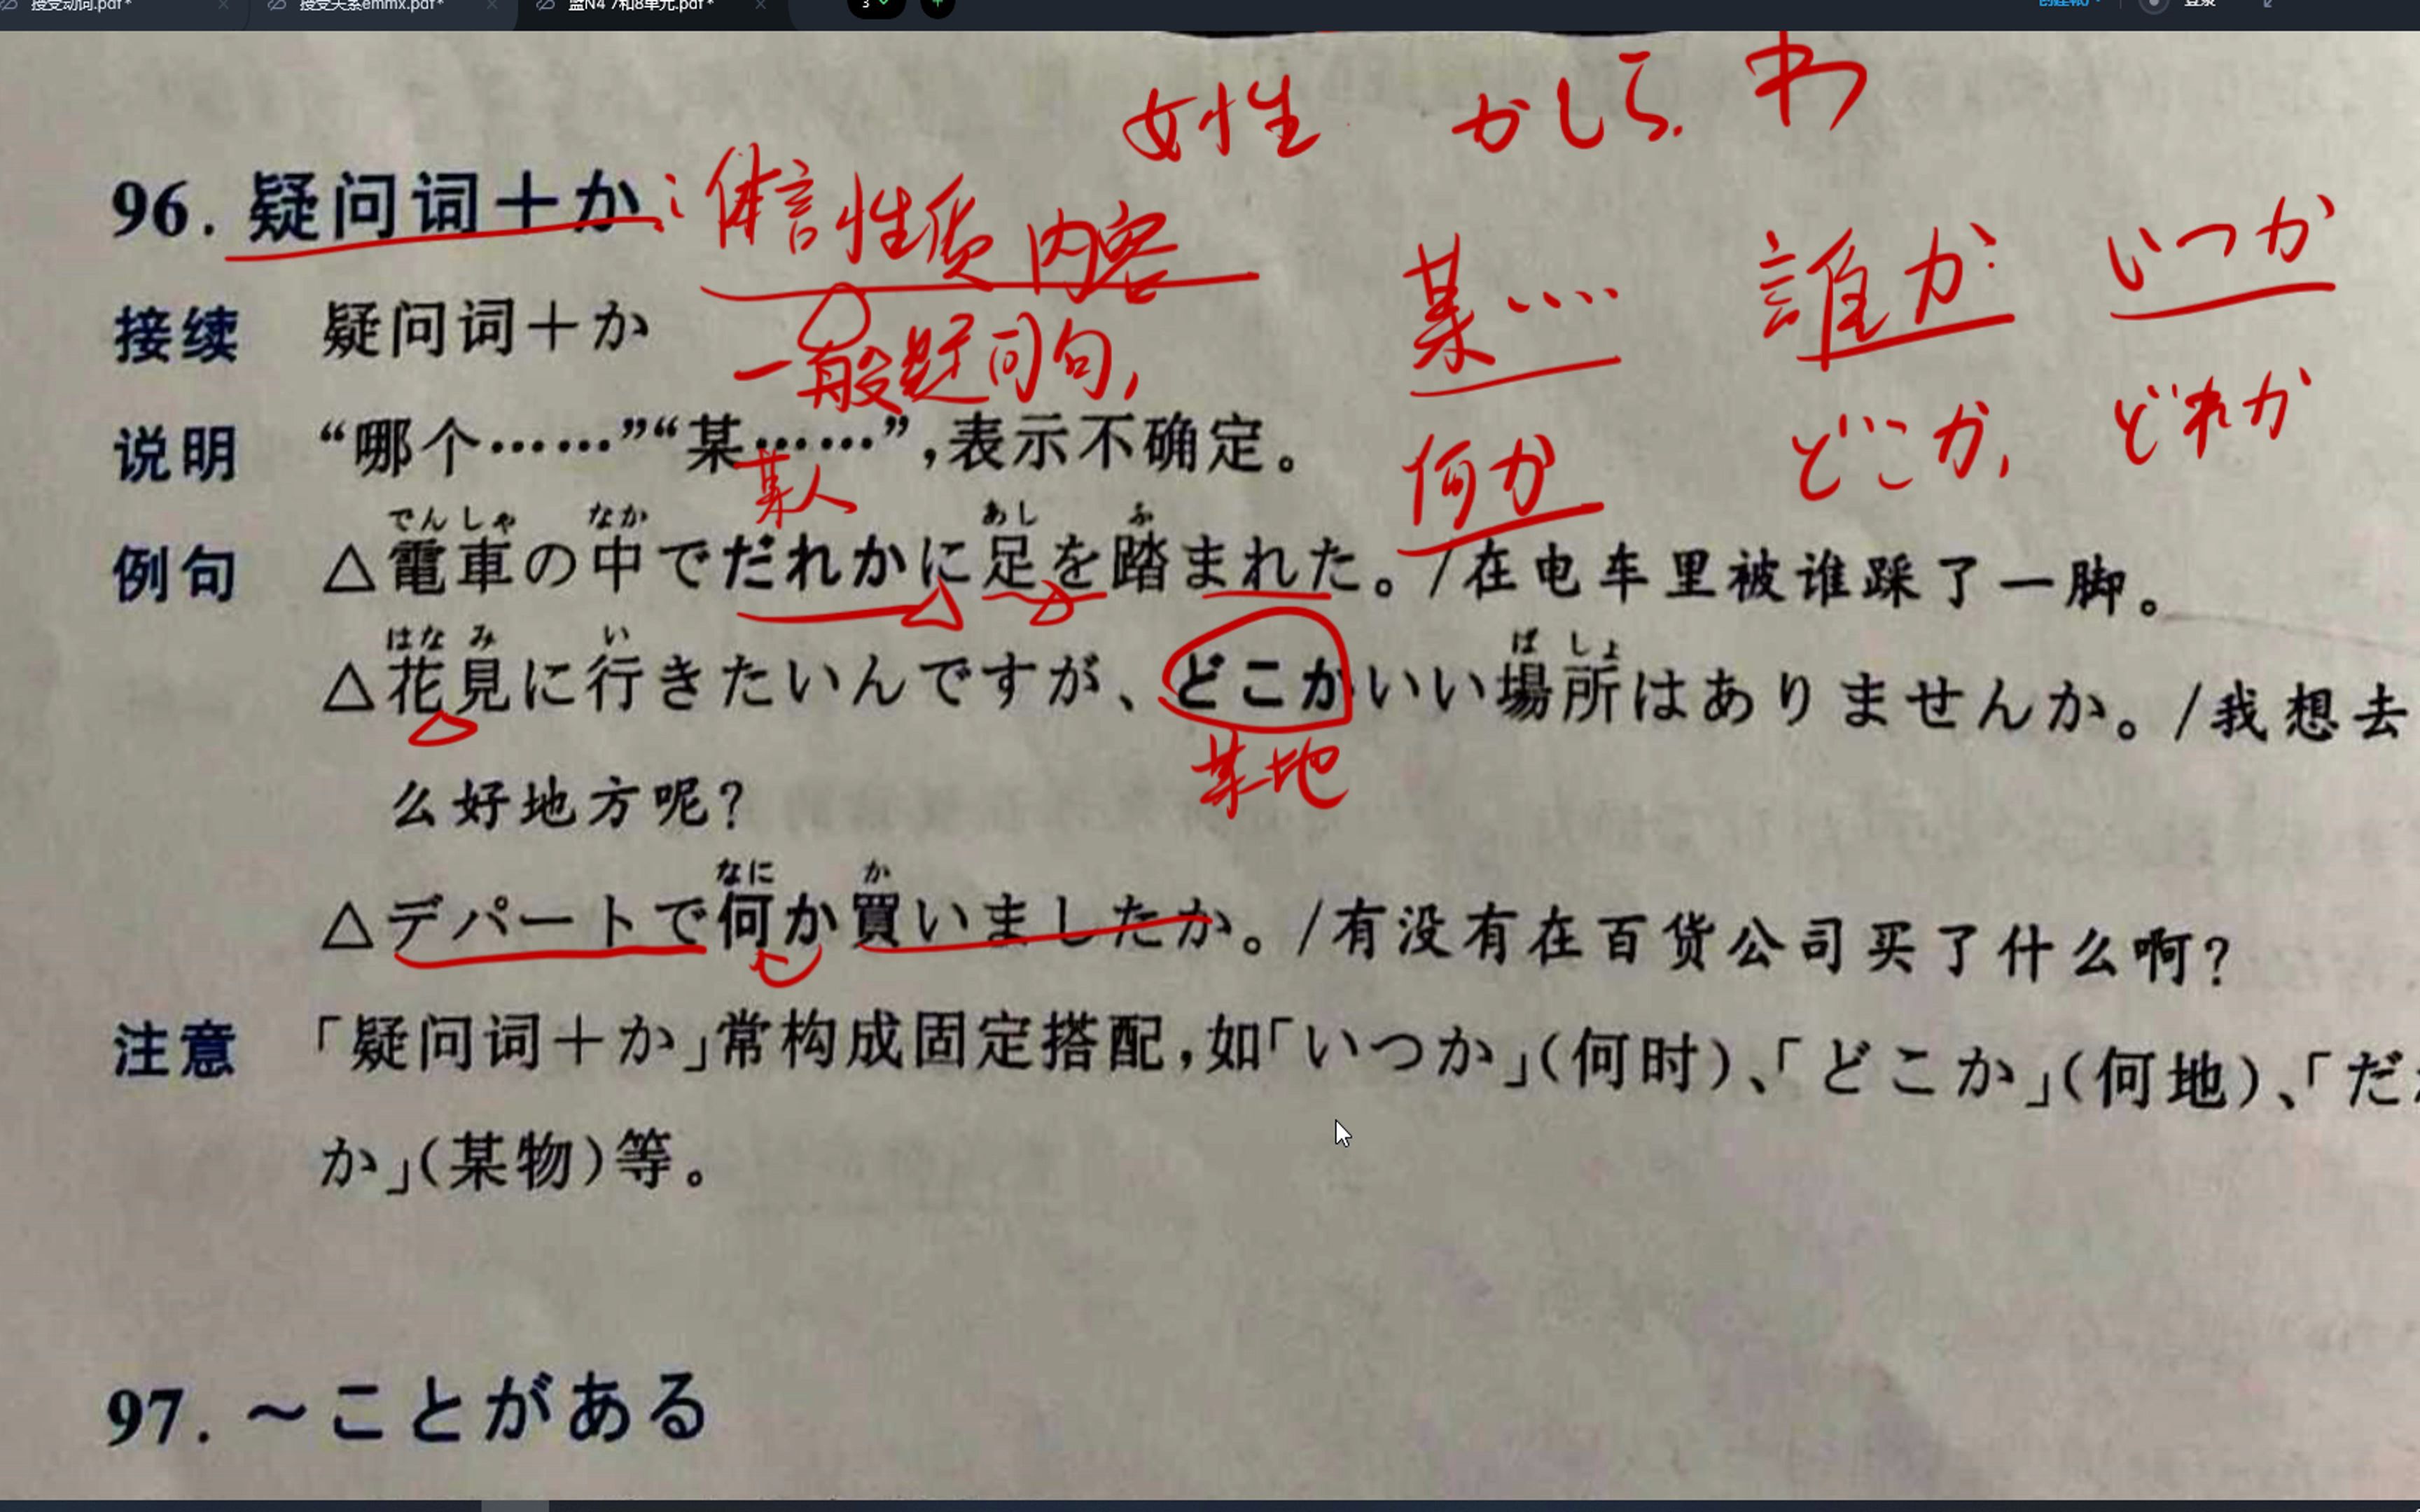 接受动词.pdf*
接受关系emmx.pdf*
蓝N4 7和8单元.pdf*
3
女性 かしら. わ
96. 疑问词＋か
: 体言性质 内容
某…… 誰か いつか
接续 疑问词＋か
一般疑问句,
何か どこか, どれか
说明 “哪个……”“某……”,表示不确定。
某人
でんしゃ なか あし ふ
例句 △電車の中でだれかに足を踏まれた。/在电车里被谁踩了一脚。
はなみ い ばしょ
△花見に行きたいんですが、どこかいい場所はありませんか。/我想去
某地
么好地方呢?
なに か
△デパートで何か買いましたか。/有没有在百货公司买了什么啊?
注意 「疑问词＋か」常构成固定搭配,如「いつか」(何时)、「どこか」(何地)、「だ
か」(某物)等。
97. ～ことがある